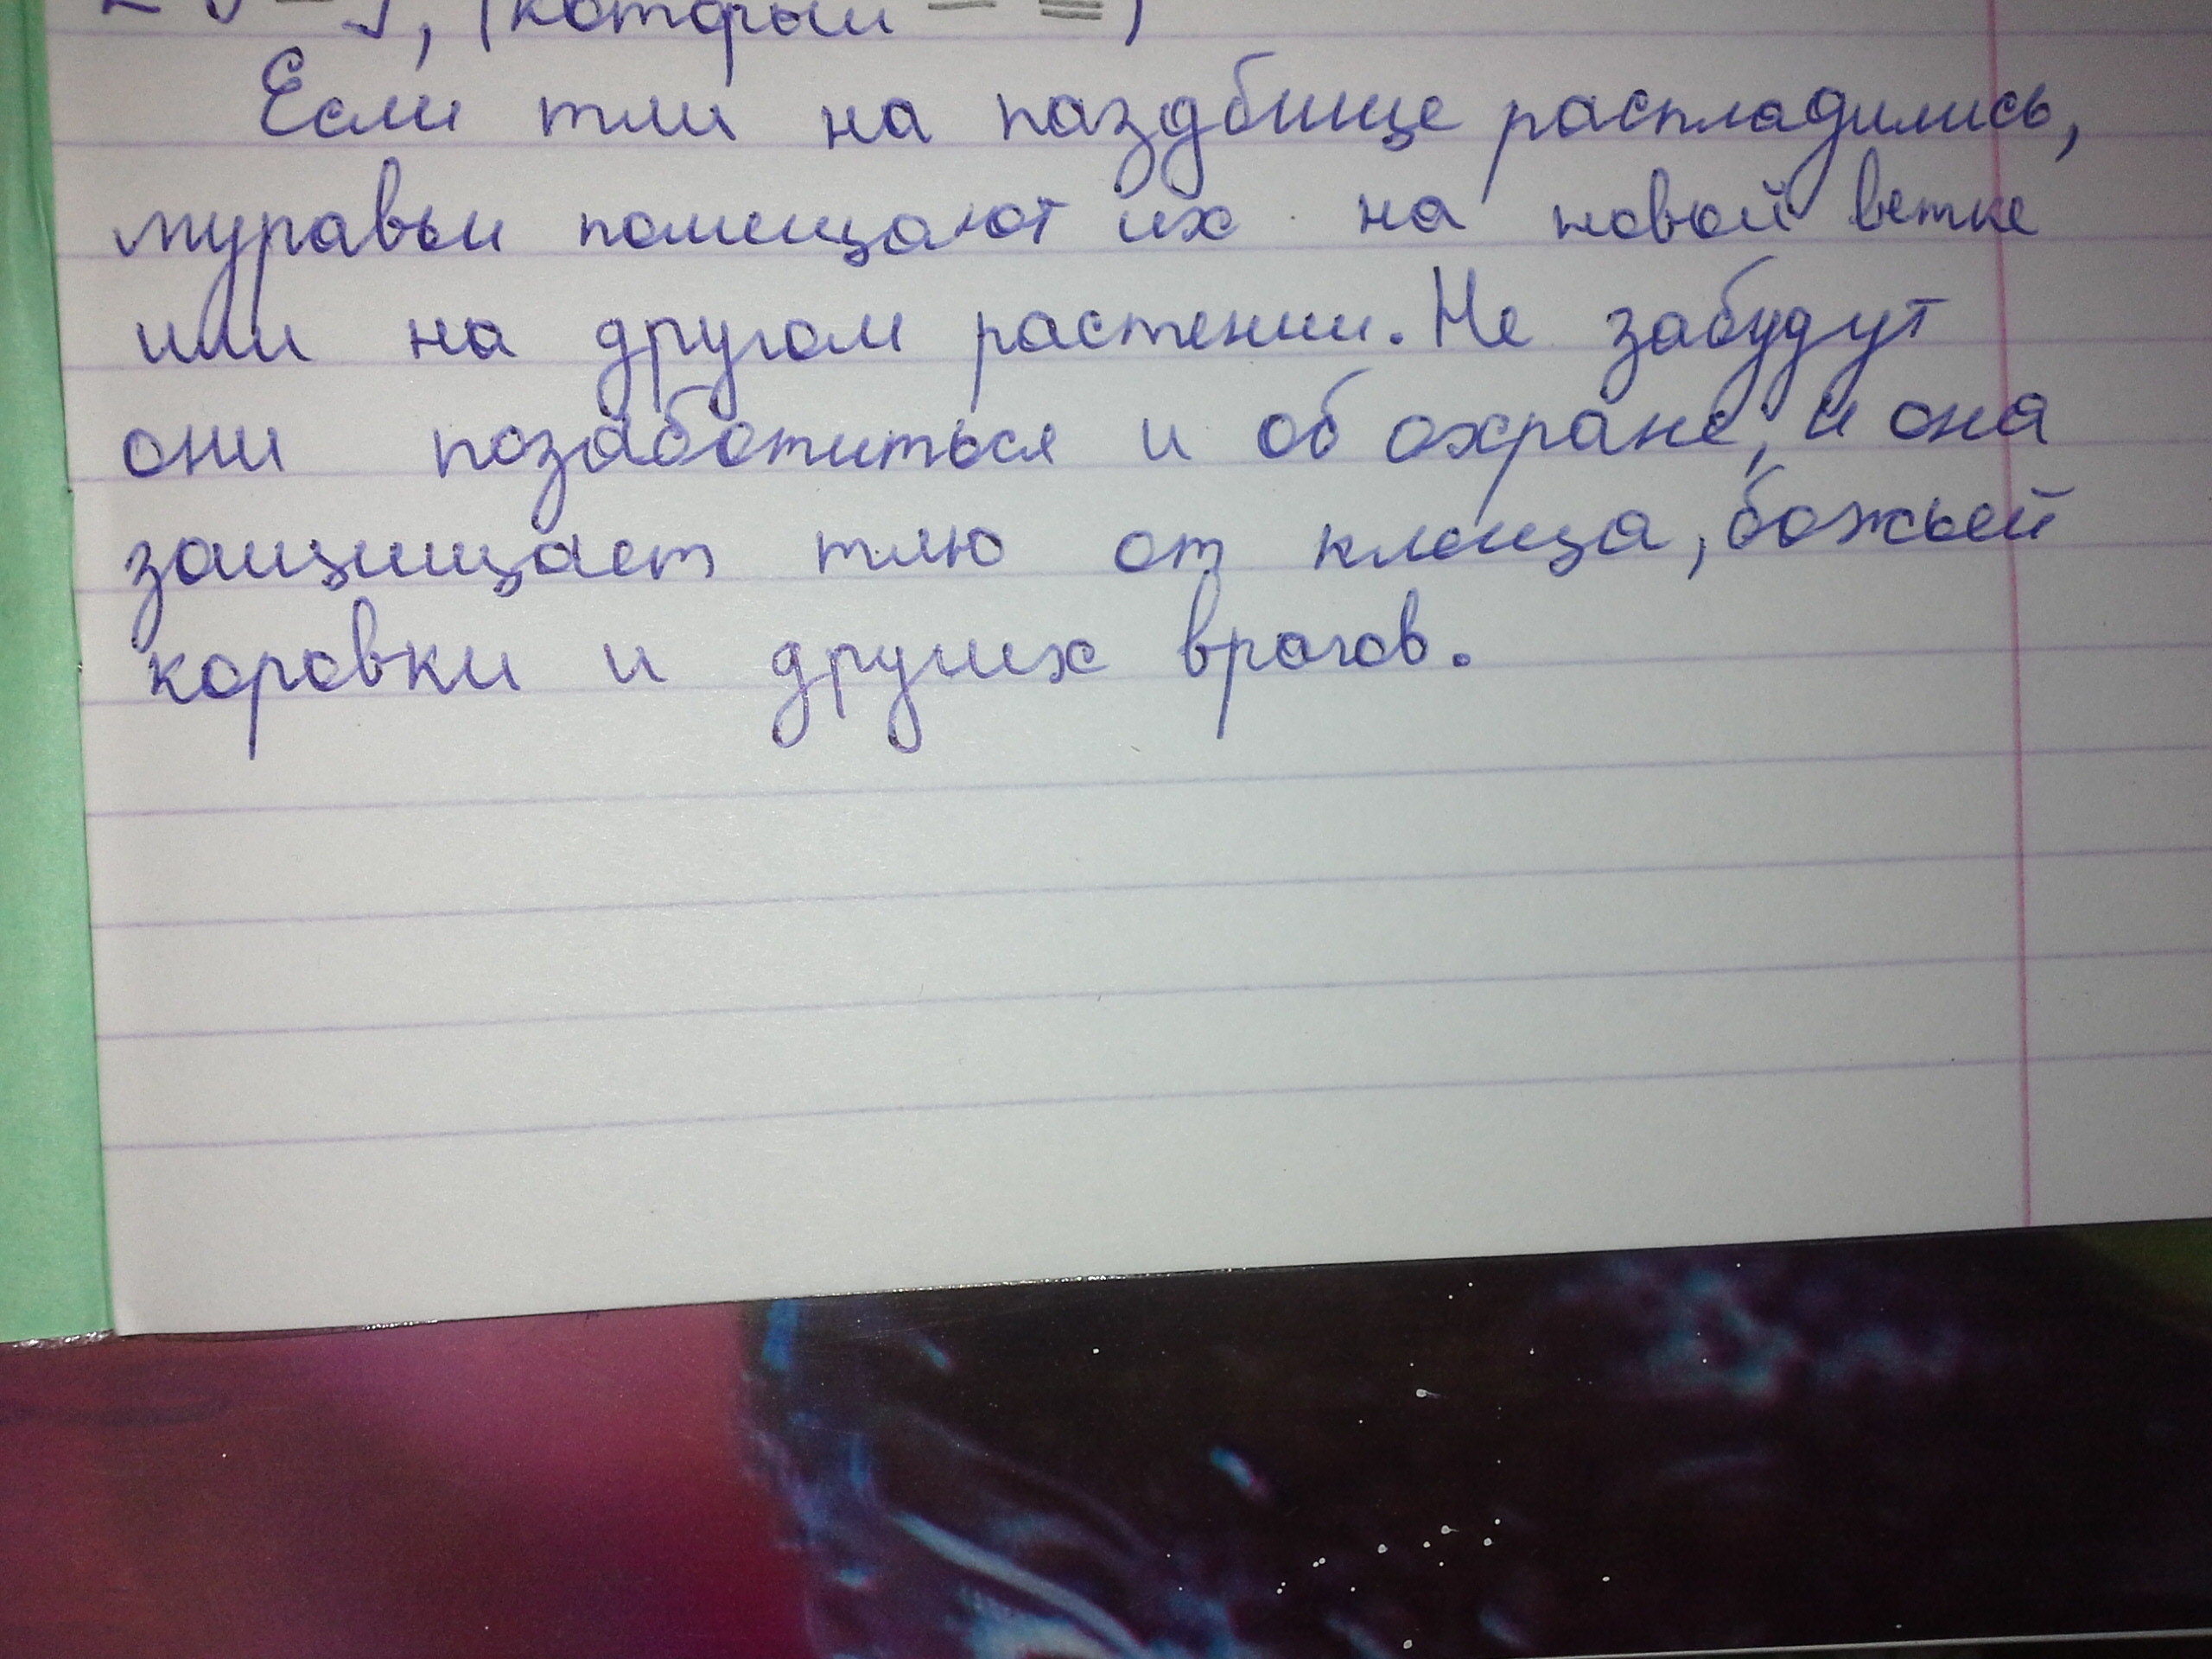 (который
Если тли на паздбище распладились,
муравьи помещают их на новой ветке
или на другом растении. Не забудут
они позаботиться и об охране, и она
защищает тлю от клеща, божьей
коровки и других врагов.